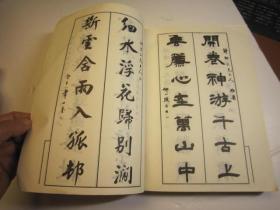 開卷神游千古上
垂簾心在萬山中
細水浮花歸別澗
斷雲含雨入孤邨